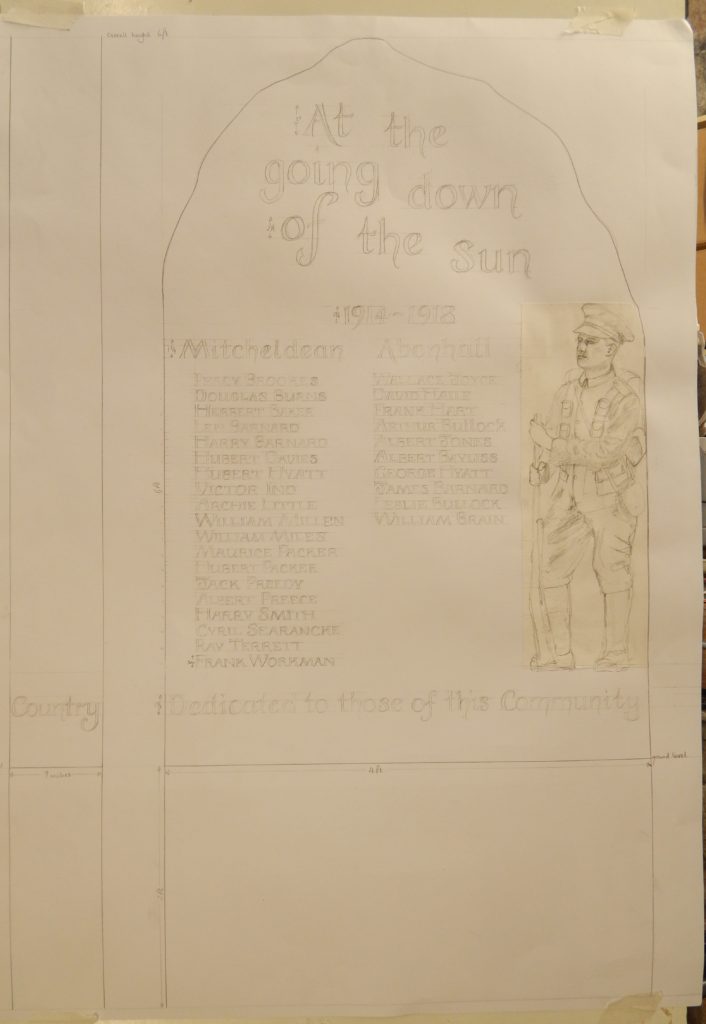 Overall height 6ft
At the
going down
of the sun
1914~1918
Mitcheldean
Percy Brookes
Douglas Burns
Herbert Baker
Len Barnard
Harry Barnard
Hubert Davies
Hubert Hyatt
Victor Ind
Archie Little
William Millen
William Miles
Maurice Packer
Hubert Packer
Jack Preedy
Albert Preece
Harry Smith
Cyril Searancke
Ray Terrett
Frank Workman
Abenhall
Wallace Boyce
David Haile
Frank Hart
Arthur Bullock
Albert Jones
Albert Bayliss
George Hyatt
James Barnard
Leslie Bullock
William Brain
Country
Dedicated to those of this Community
ground level
9 inches
4ft